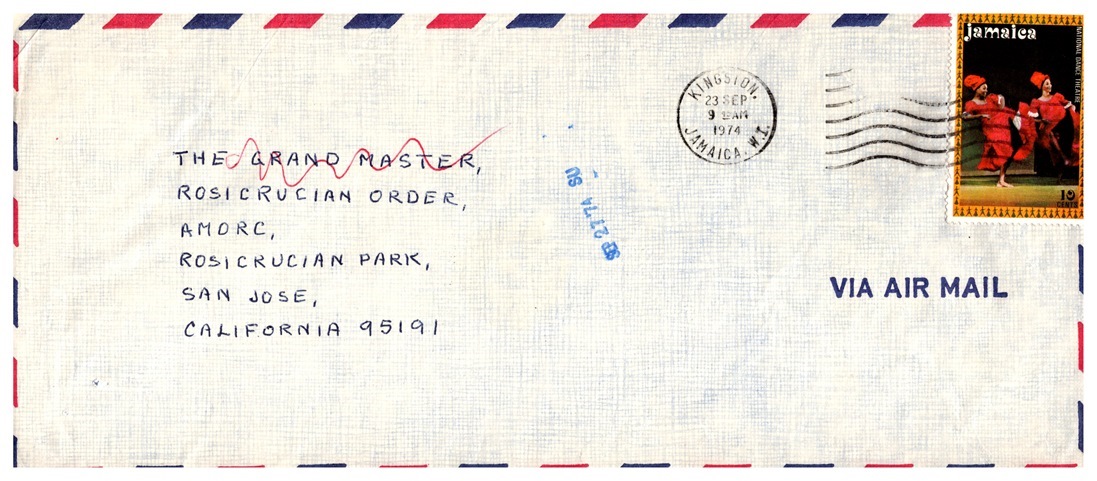 Jamaica
NATIONAL DANCE THEATRE
10
CENTS
KINGSTON,
23 SEP
1974
JAMAICA. W.I.
THE GRAND MASTER,
ROSICRUCIAN ORDER,
AMORC,
ROSICRUCIAN PARK,
SAN JOSE,
CALIFORNIA 95191
SEP 27 74
VIA AIR MAIL